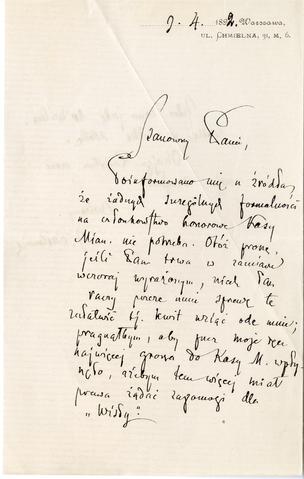 9. 4. 1892. Warszawa,
UL. CHMIELNA, 91, M. 6.
Szanowny Panie,
Poinformowano mię u źródła,
że żadnych szczególnych formalności
na członkowstwo honorowe Kasy
Mian. nie potrzeba. Otóż proszę,
jeśli Pan trwa w zamiarze
wczoraj wyrażonym, niech Pan
raczy przeze mnie sprawę tę
załatwić tj. kwit wziąć ode mnie;
pragnąłbym, aby przez moje ręce
najwięcej grosza do Kasy M. wpły-
nęło, ażebym tem więcej miał
prawa żądać zapomogi dla
„Wisły".